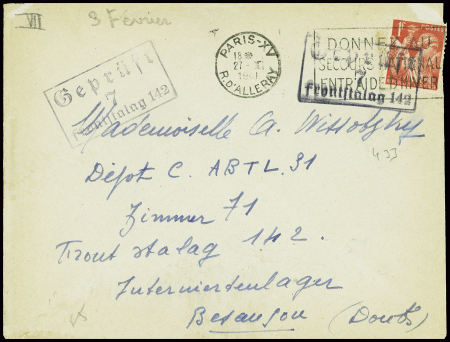 VII
3 Février
Geprüft
7
Frontstalag 142
PARIS-XV
18
27
R. D'ALLERAY
DONNEZ AU
SECOURS NATIONAL
ENTR'AIDE D'HIVER
Geprüft
7
Frontstalag 142
Mademoiselle A. Wittotzky
433
Dépot C. ABTL. 31
Zimmer 71
Front stalag 142.
Interniertenlager
Besançon (Doubs)